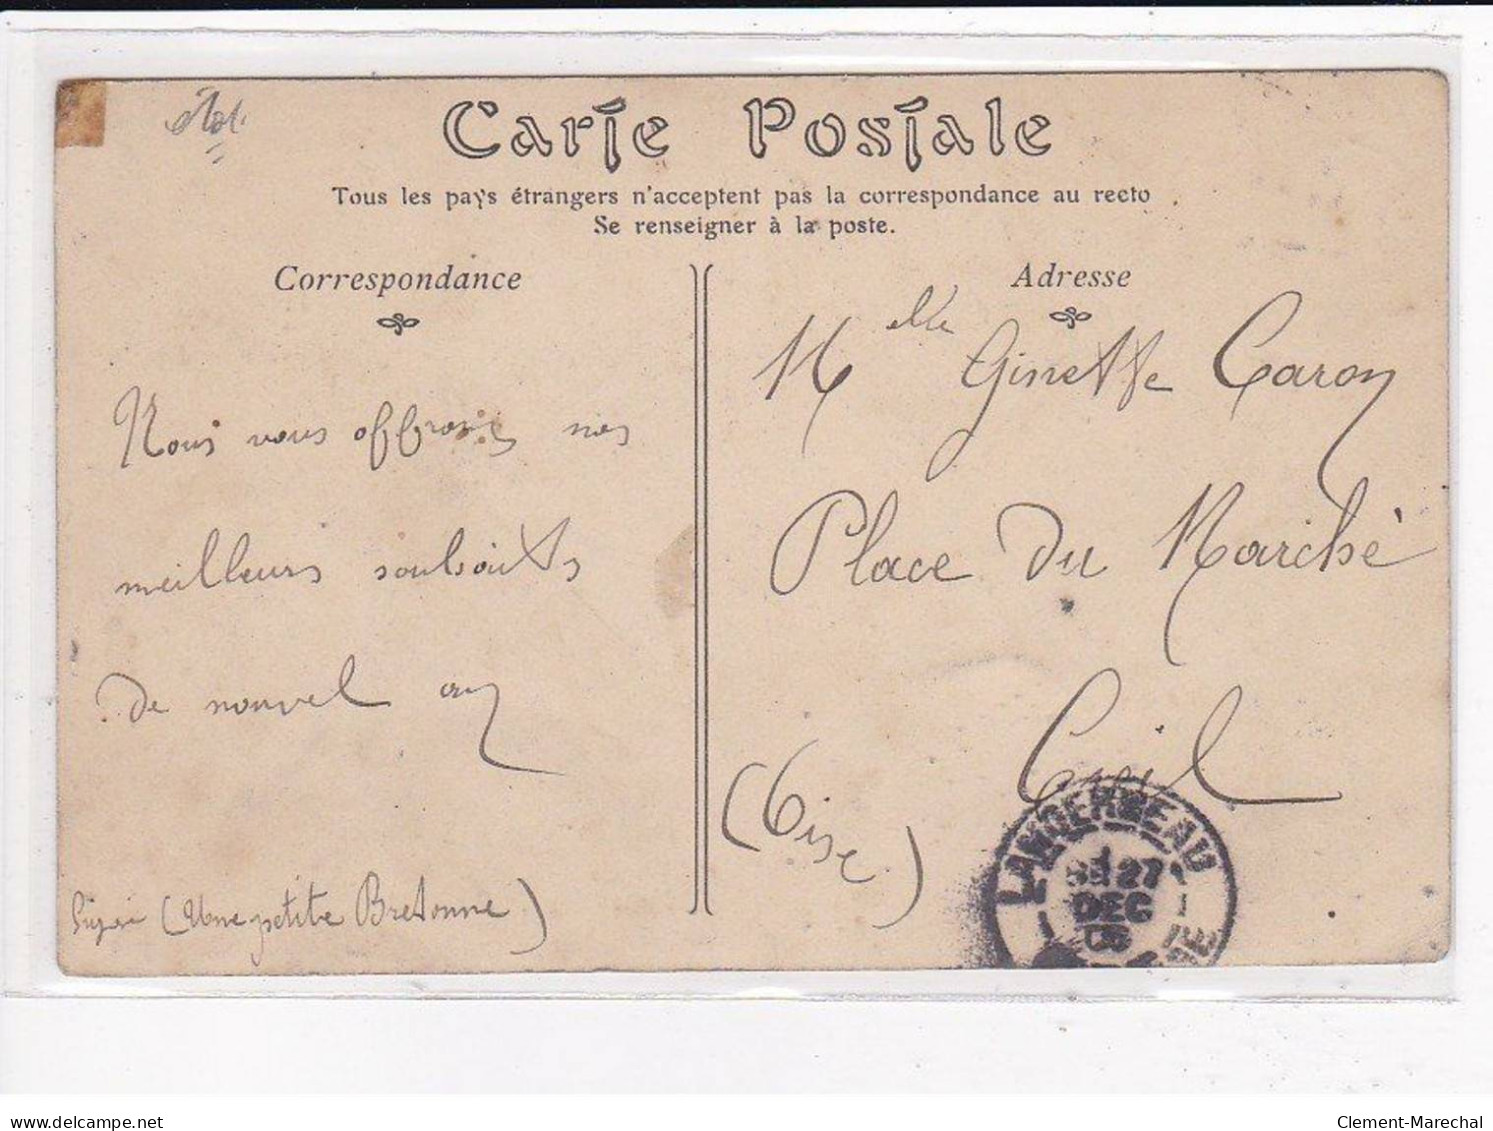 Carte Postale
Tous les pays étrangers n'acceptent pas la correspondance au recto
Se renseigner à la poste.
Correspondance
Adresse
Nous vous offrons nos
meilleurs souhaits
de nouvel an
(Une petite Bretonne)
Mlle Ginette Caron
Place du Marché
Creil
(Oise)
LANDERNEAU
27
DEC
delcampe.net
Clement-Marechal